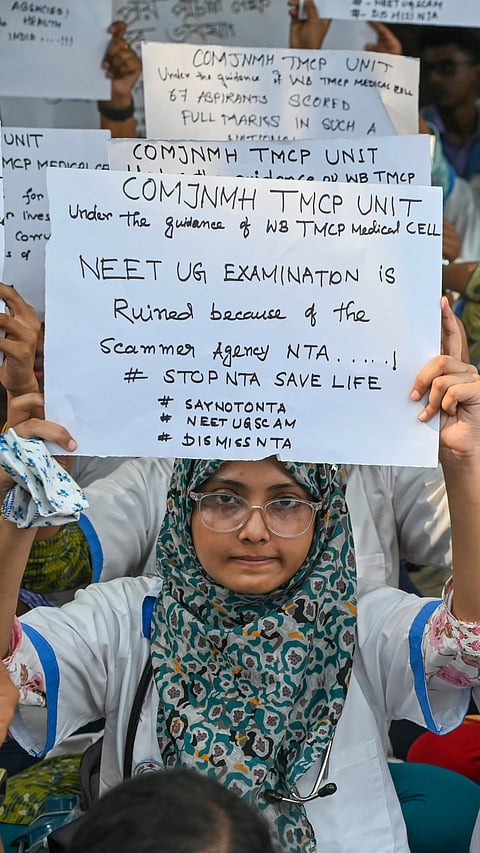 AGENCIES!
HEALTH
INDIA ...!!!
# NEET UG SCAM
# DISMISS NTA
COMJNMH TMCP UNIT
Under the guidance of WB TMCP MEDICAL CELL
67 ASPIRANTS SCORED
FULL MARKS IN SUCH A
UNIT
MCP MEDICAL CE
for
lives
Corru
of
COMJNMH TMCP UNIT
Under the guidance of WB TMCP
COMJNMH TMCP UNIT
Under the guidance of WB TMCP Medical CELL
NEET UG EXAMINATION IS
Ruined because of the
Scammer Agency NTA.....!
# STOP NTA SAVE LIFE
# SAYNOTONTA
# NEETUGSCAM
# DISMISSNTA